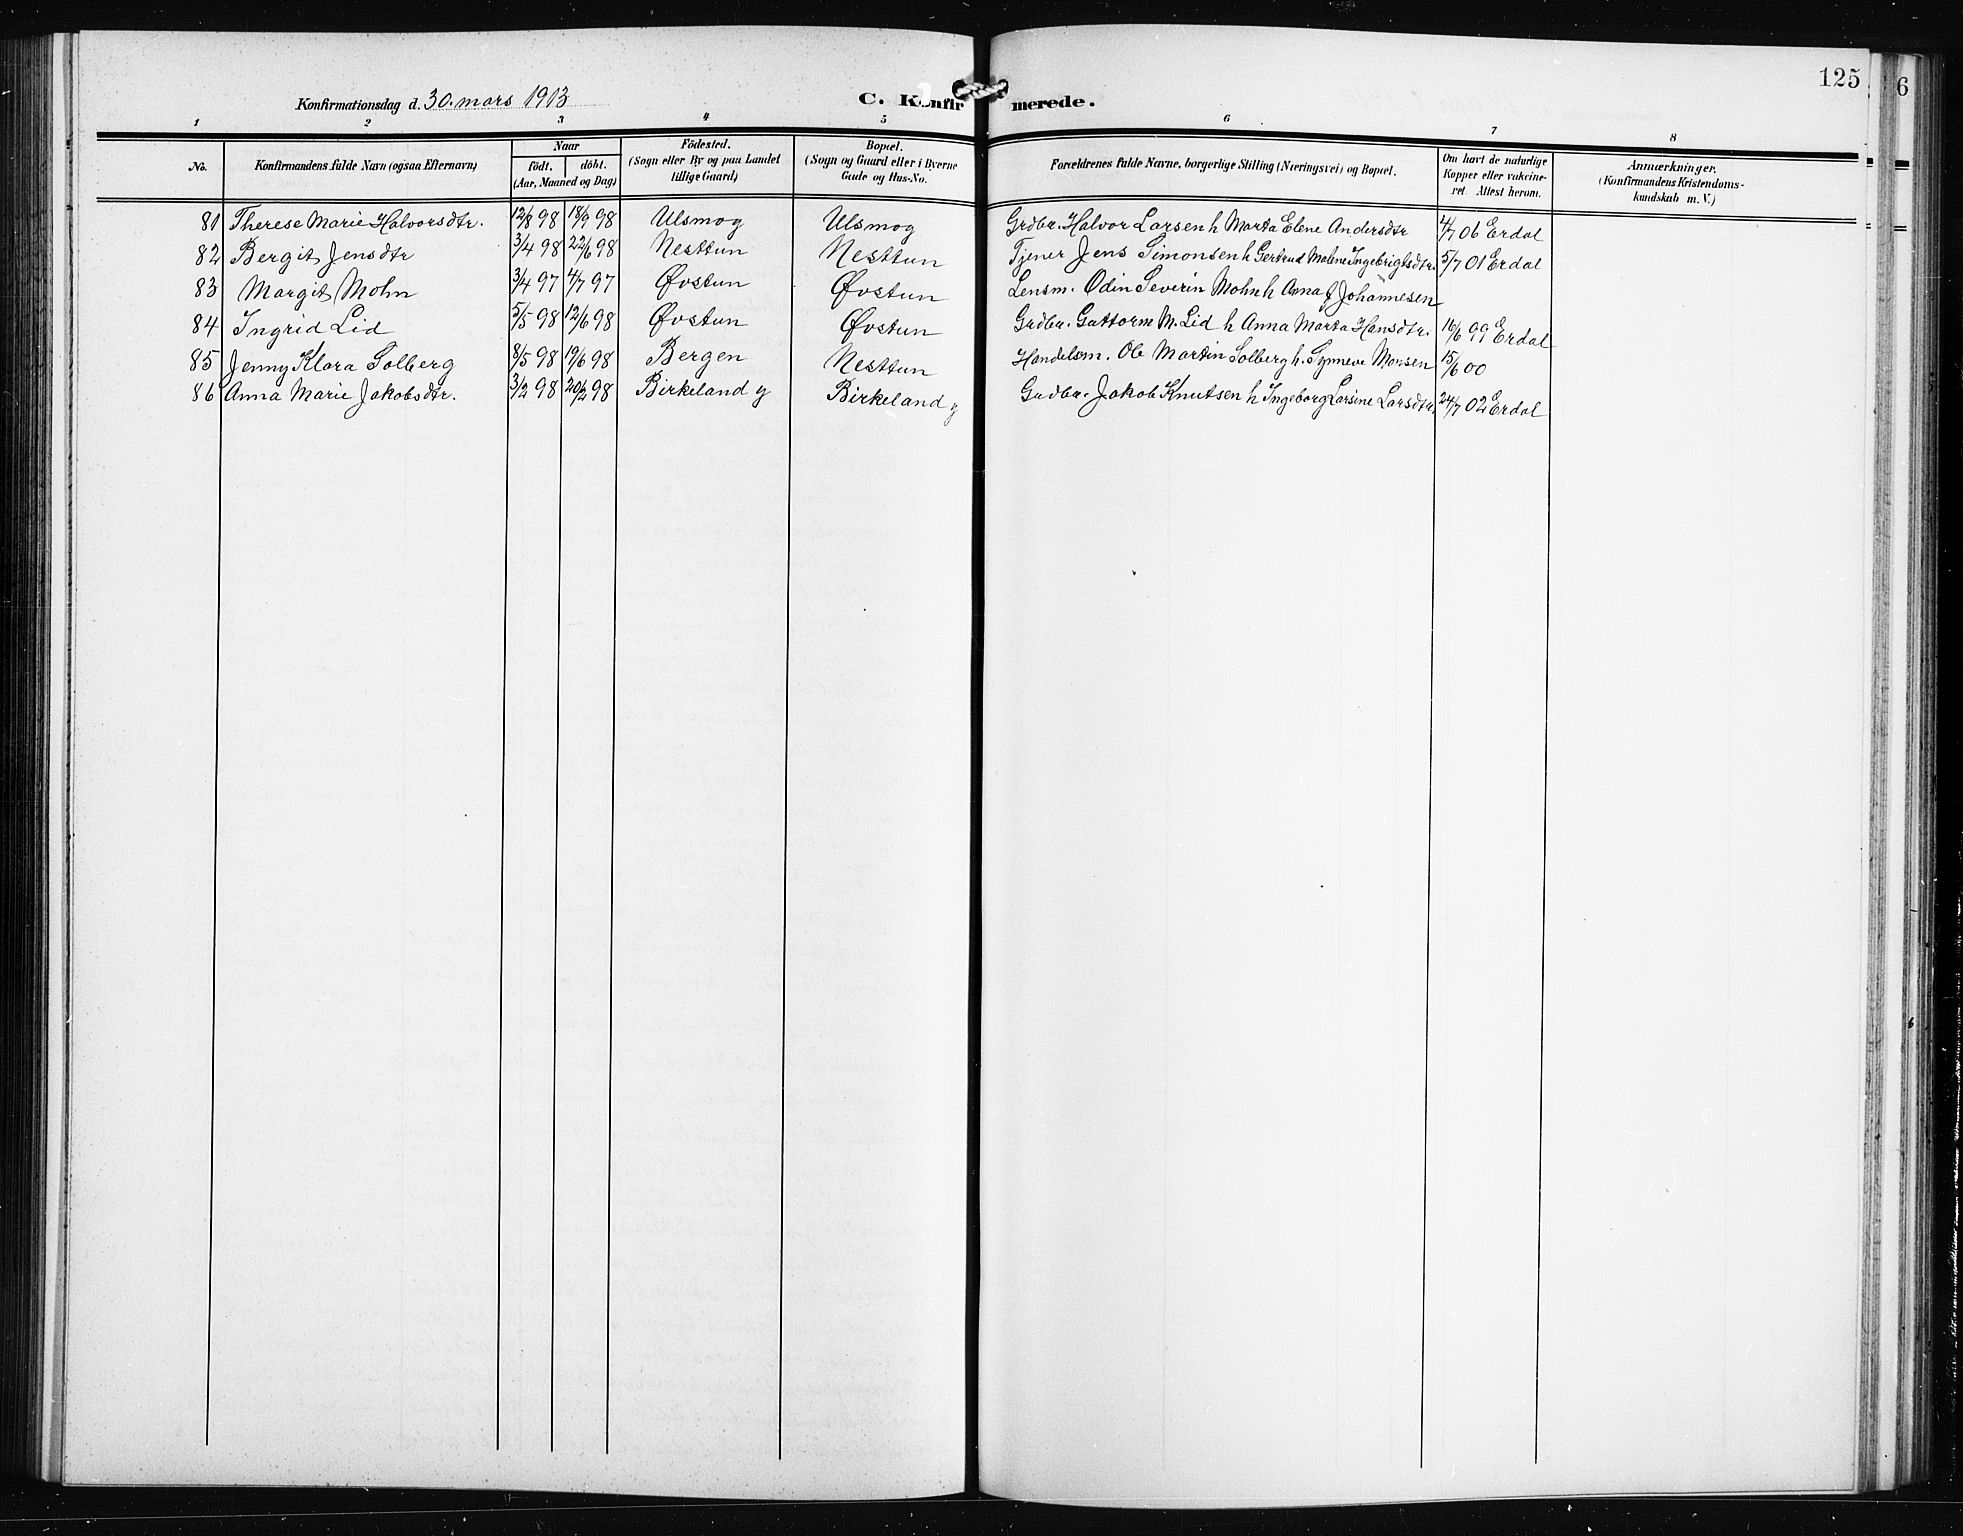 125
6
Konfirmationsdag d. 30. mars 1913
C. Konfirmerede.
1 2 3 4 5 6 7 8
No. Konfirmandens fulde Navn (ogsaa Efternavn) Naar født. døbt. (Aar, Maaned og Dag) Födested. (Sogn eller By og paa Landet tillige Gaard) Bopæl. (Sogn og Gaard eller i Byerne Gade og Hus-No. Forældrenes fulde Navne, borgerlige Stilling (Næringsvei) og Bopæl. Om havt de naturlige Kopper eller vakcineret. Attest herom. Anmærkninger. (Konfirmandens Kristendomskundskab m. V.)
81 Therese Marie Halvorsdtr. 12/8 98 18/9 98 Ulsmog Ulsmog Grdbr. Halvor Larsen h Marta Elene Andersdtr 4/7 06 Erdal
82 Bergit Jensdtr 3/4 98 22/6 98 Nesttun Nesttun Tjener Jens Simonsen h Gertrud Malene Ingebrigtsdtr. 5/7 01 Erdal
83 Margit Mohn 3/4 97 4/7 97 Øvstun Øvstun Lensm. Odin Severin Mohn h Anna J Johannesen
84 Ingrid Lid 5/5 98 12/6 98 Øvstun Øvstun Grdbr. Guttorm M. Lid h Anna Marta Hansdtr. 16/6 99 Erdal
85 Jenny Klara Solberg 8/5 98 19/6 98 Bergen Nesttun Handelsm. Ole Martin Solberg h. Synneve Monsen 15/6 00
86 Anna Marie Jakobsdtr. 3/2 98 20/2 98 Birkeland y Birkeland y Grdbr. Jakob Knutsen h Ingeborg Larsine Larsdtr. 24/7 02 Erdal